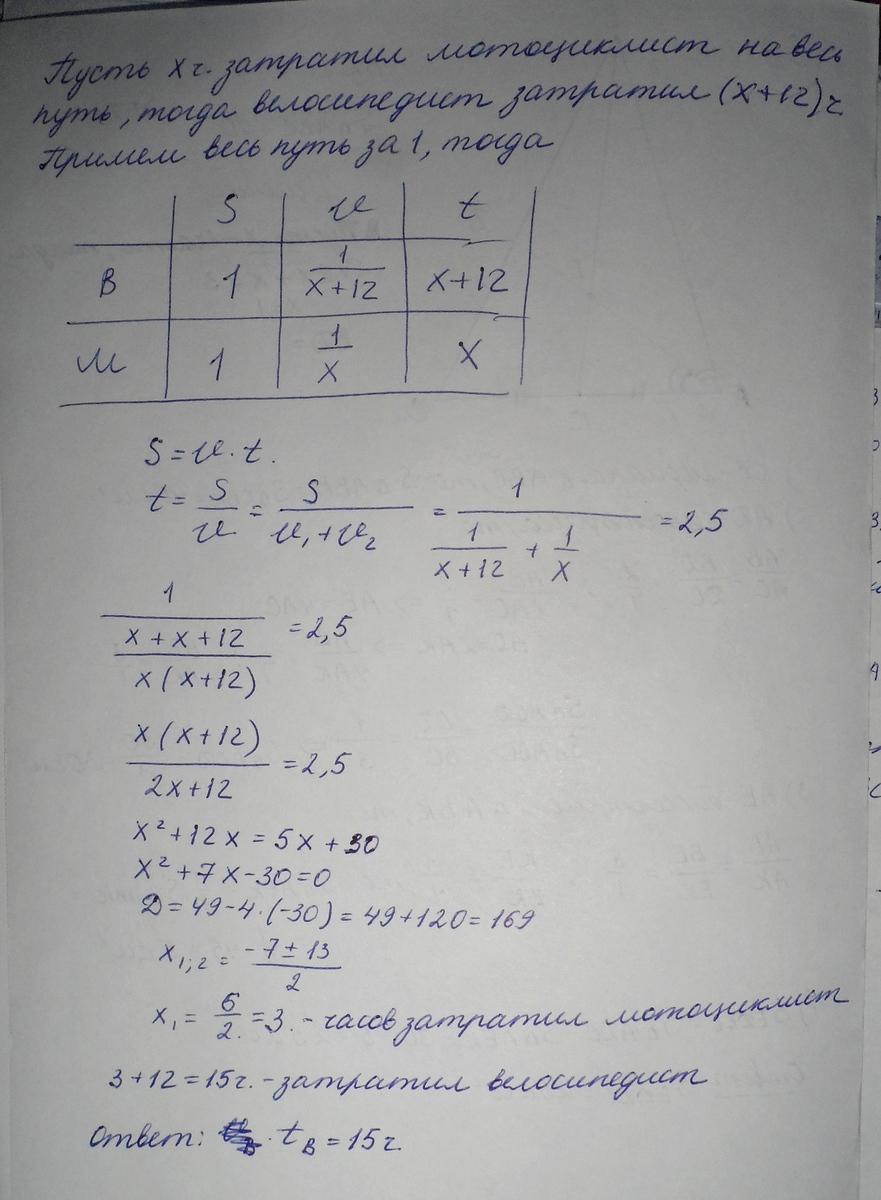 Пусть x ч. затратил мотоциклист на весь
путь, тогда велосипедист затратил (x+12) ч.
Примем весь путь за 1, тогда
S v t
В 1 1/(x+12) x+12
М 1 1/x x
S = v · t.
t = S/v = S/(v₁+v₂) = 1/(1/(x+12) + 1/x) = 2,5
1/((x+x+12)/(x(x+12))) = 2,5
x(x+12)/(2x+12) = 2,5
x² + 12x = 5x + 30
x² + 7x - 30 = 0
D = 49 - 4·(-30) = 49 + 120 = 169
x₁;₂ = (-7 ± 13)/2
x₁ = 6/2 = 3. - часов затратил мотоциклист
3 + 12 = 15 ч. - затратил велосипедист
Ответ: t_В = 15 ч.